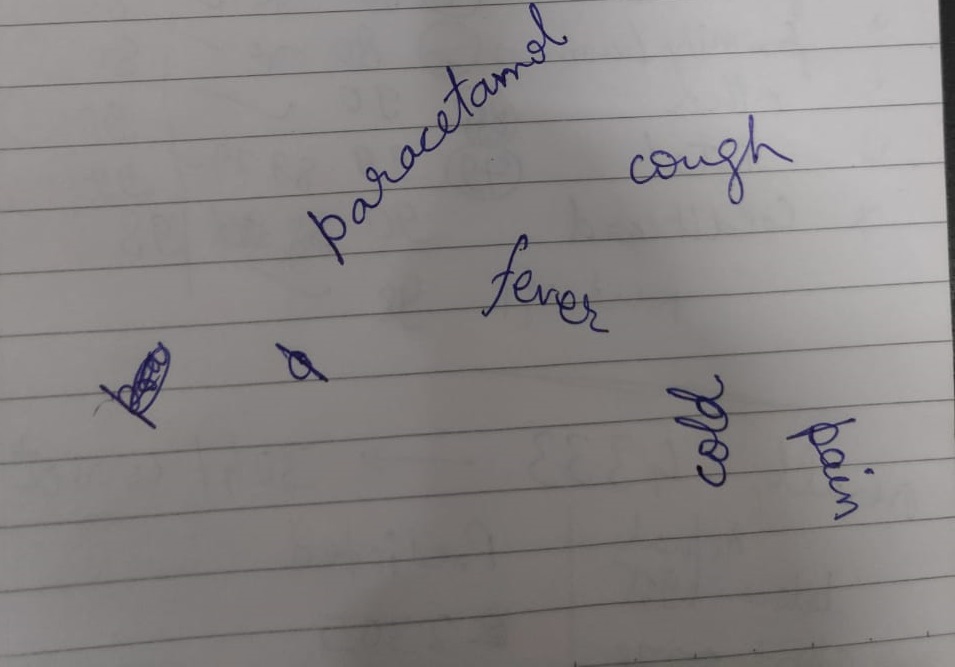 paracetamol
cough
fever
cold
pain